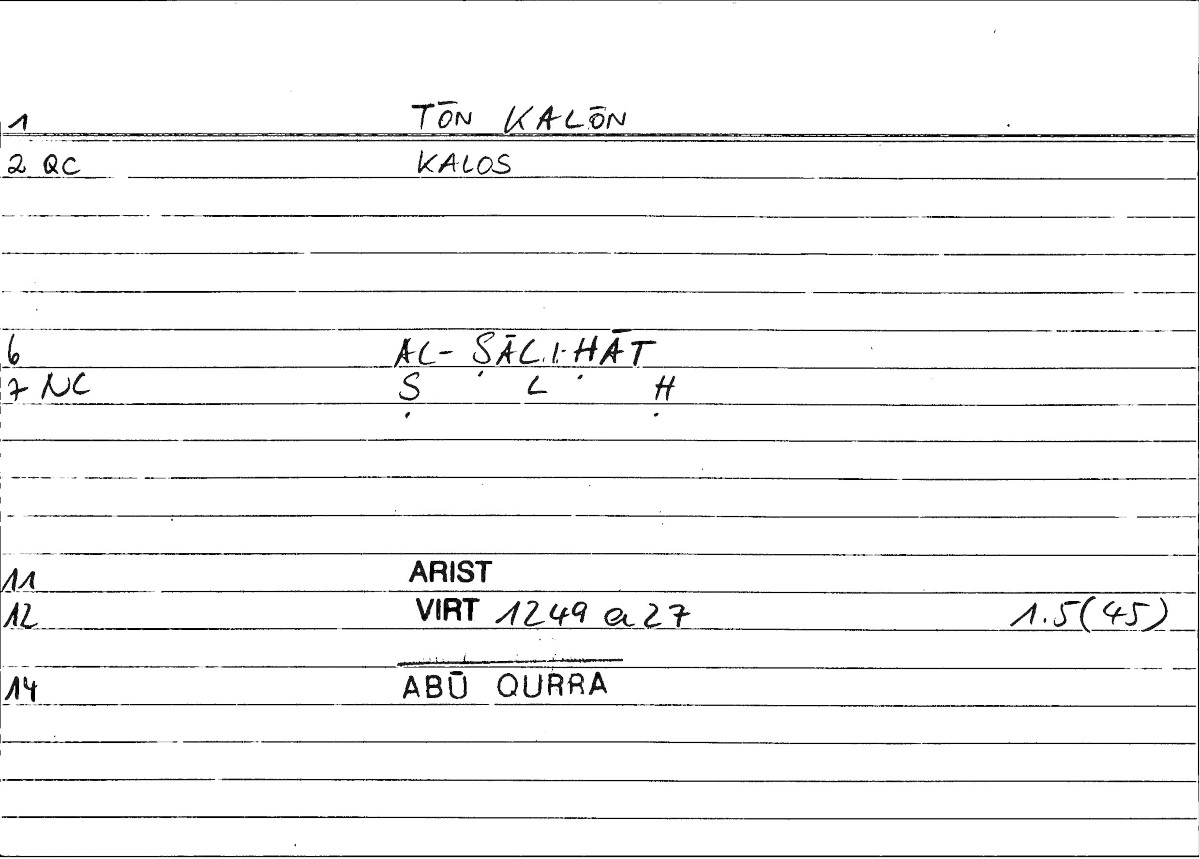 1 TŌN KALŌN
2 QC KALOS
6 AL-ṢĀLIḤĀT
7 NC Ṣ L Ḥ
11 ARIST
12 VIRT 1249 a 27 1.5(45)
14 ABŪ QURRA